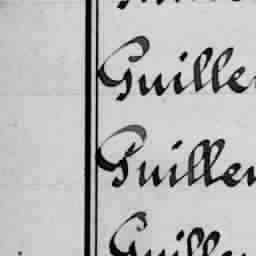 Guille
Guiller
Guille